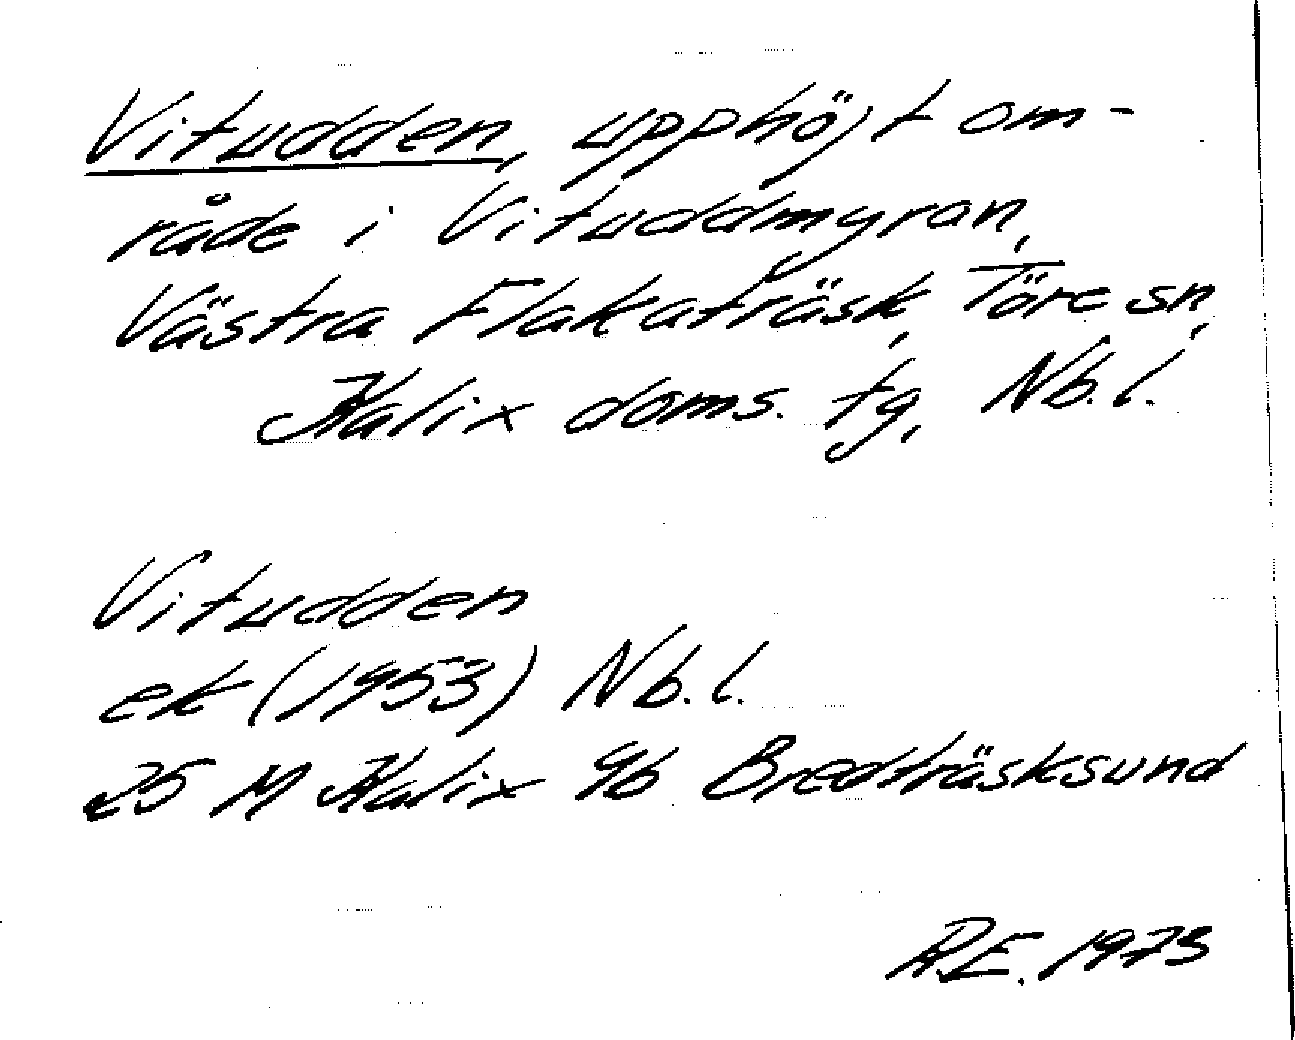 Vitudden, upphöjt om-
råde i Vituddmyran,
Västra Flakaträsk, Töre sn,
Kalix doms. tg, Nb.l.
Vitudden
ek (1953) Nb.l.
25 M Kalix 9b Bredträsksund
R.E. 1973